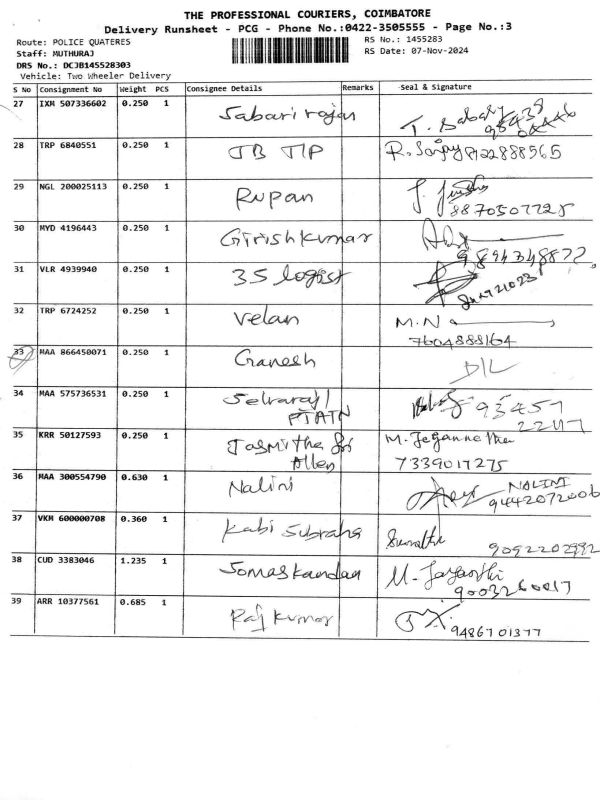 THE PROFESSIONAL COURIERS, COIMBATORE
Delivery Runsheet - PCG - Phone No.:0422-3505555 - Page No.:3
Route: POLICE QUATERES
RS No.: 1455283
Staff: MUTHURAJ
RS Date: 07-Nov-2024
DRS No.: DCJB145528303
Vehicle: Two Wheeler Delivery
S No Consignment No Weight PCS Consignee Details Remarks Seal & Signature
27 IXM 507336602 0.250 1 Sabarirajan T. Sabari
28 TRP 6840551 0.250 1 JB TIP R. Sanjay 8122888565
29 NGL 200025113 0.250 1 Rupan 8870507728
30 MYD 4196443 0.250 1 Girishkumar 9894348872
31 VLR 4939940 0.250 1 3S logist
32 TRP 6724252 0.250 1 Velan M.N
7604888164
33 MAA 866450071 0.250 1 Ganesh D/L
34 MAA 575736531 0.250 1 Selvaraj / 93457
PTATN 22417
35 KRR 50127593 0.250 1 Jasmitha Sri M. Jegannatha
Allen 7339017275
36 MAA 300554790 0.630 1 Nalini NALINI
9442072006
37 VKM 600000708 0.360 1 Kabi Subraha Sumathi
9092202992
38 CUD 3383046 1.235 1 Somaskandan M. Jayanthi
9003260017
39 ARR 10377561 0.685 1 Raj kumar 9486701377